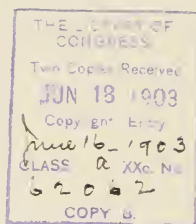 THE LIBRARY OF
CONGRESS
Two Copies Received
JUN 18 1903
Copyright Entry
June 16-1903
CLASS a XXc. No
6 2 0 6 2
COPY B.